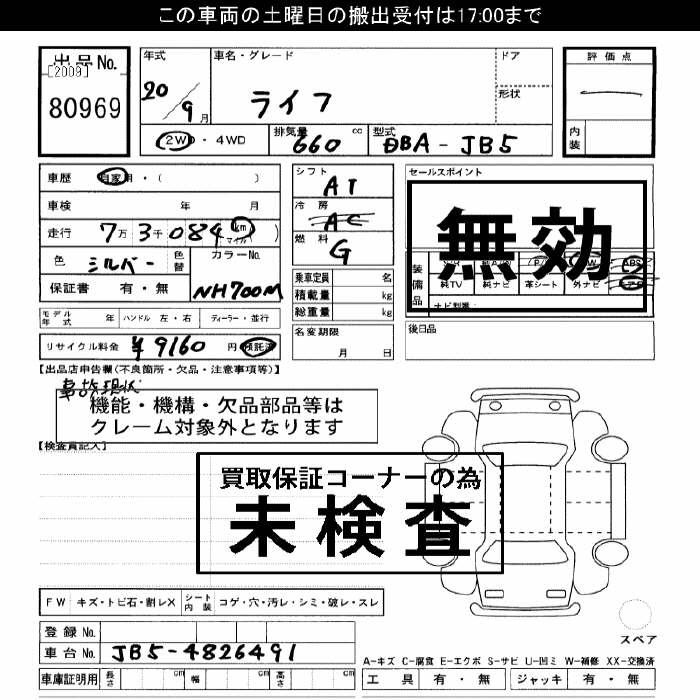 この車両の土曜日の搬出受付は17:00まで
出品No.
[2009]
80969
年式
20/9月
車名・グレード
ライフ
ドア
形状
評価点
内装
2WD・4WD
排気量 660 cc
型式 DBA-JB5
車歴 自家用・( )
車検 年 月
走行 7万3千084 km マイル
色 シルバー 色替
カラーNo.
NH700M
保証書 有・無
シフト
AT
冷房
AC
燃料
G
乗車定員 名
積載量 kg
総重量 kg
名変期限
月 日
セールスポイント
無効
装備品
純TV 純ナビ 革シート 外ナビ
ナビ型番:
後日品
モデル年式 年 ハンドル 左・右 ディーラー・並行
リサイクル料金 ¥9160 円 預託済
【出品店申告欄(不良箇所・欠品・注意事項等)】
事故現状
機能・機構・欠品部品等は
クレーム対象外となります
【検査員記入】
買取保証コーナーの為
未検査
FW キズ・トビ石・割レX シート内装 コゲ・穴・汚レ・シミ・破レ・スレ
登録No.
車台No. JB5-4826491
車庫証明用 長さ cm 幅 cm 高さ cm
スペア
A-キズ C-腐食 E-エクボ S-サビ U-凹ミ W-補修 XX-交換済
工具 有・無 ジャッキ 有・無